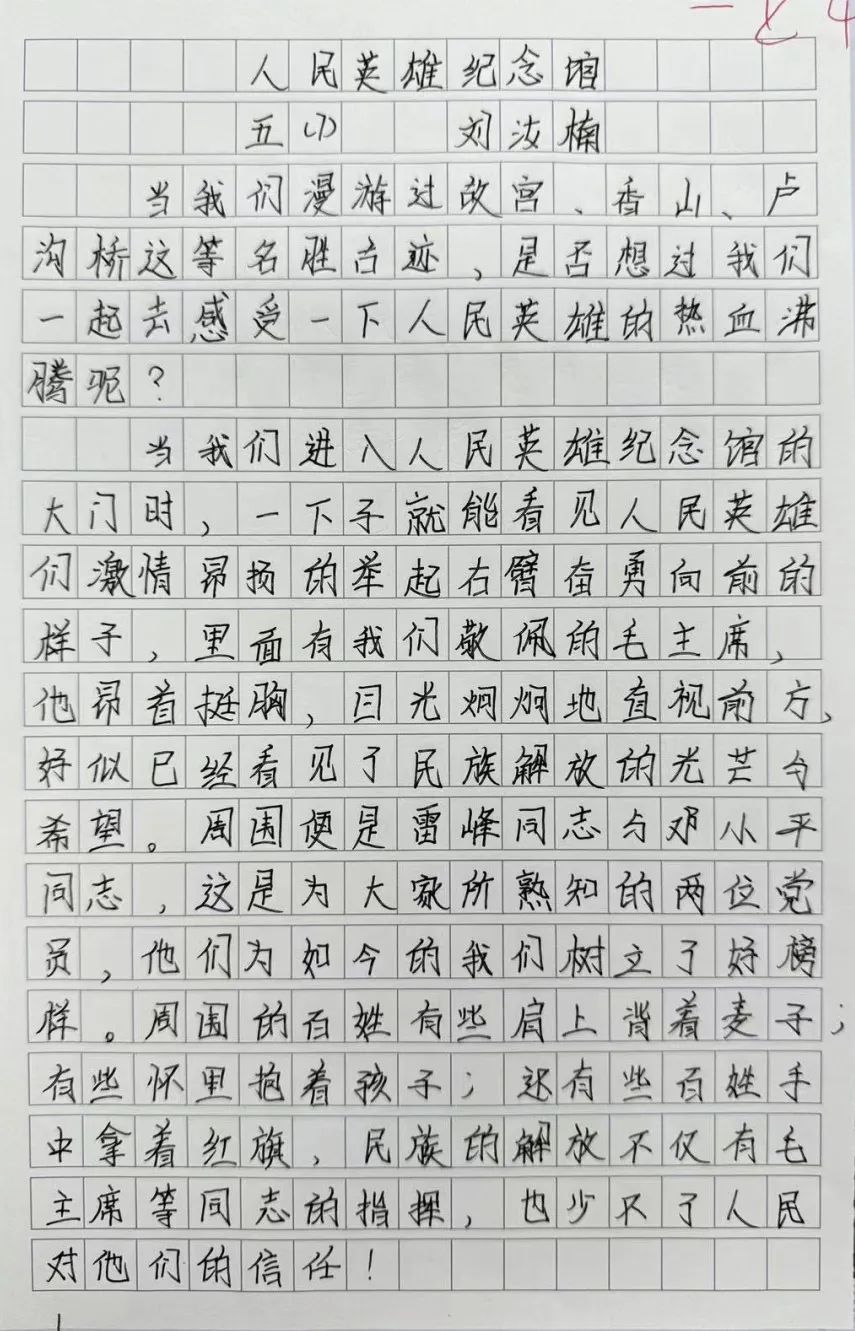 人民英雄纪念馆
五(7) 刘汝楠
当我们漫游过故宫、香山、卢
沟桥这等名胜古迹,是否想过我们
一起去感受一下人民英雄的热血沸
腾呢?
当我们进入人民英雄纪念馆的
大门时,一下子就能看见人民英雄
们激情昂扬的举起右臂奋勇向前的
样子,里面有我们敬佩的毛主席,
他昂首挺胸,目光炯炯地直视前方,
好似已经看见了民族解放的光芒与
希望。周围便是雷峰同志与邓小平
同志,这是为大家所熟知的两位党
员,他们为如今的我们树立了好榜
样。周围的百姓有些肩上背着麦子;
有些怀里抱着孩子;还有些百姓手
中拿着红旗,民族的解放不仅有毛
主席等同志的指挥,也少不了人民
对他们的信任!